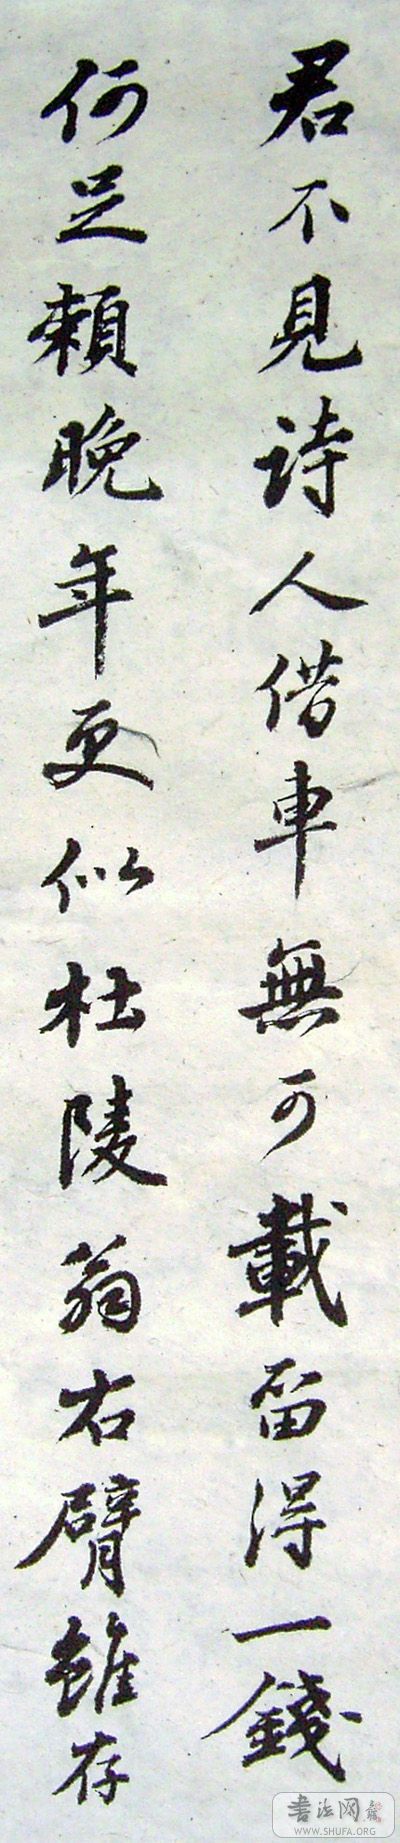 君不見詩人借車無可載留得一錢
何足賴晚年更似杜陵翁右臂雖存
書法网
WWW.SHUFA.ORG